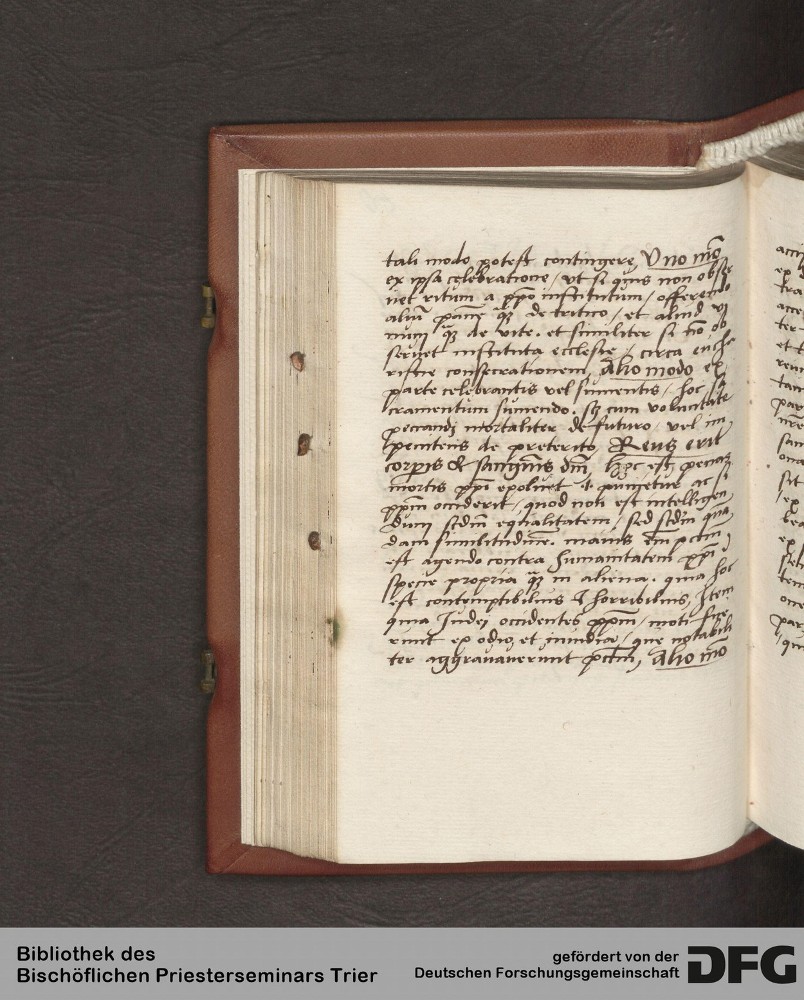 tali modo potest contingere, Uno mō
ex ipsa celebratione / ut si quis non obser
uet ritum a xp̄o institutum / offerendo
aliū panē q̄ȝ de tritico / et aliud vi
num q̄ȝ de vite. et similiter si nō ob
seruet instituta ecclesie / circa eucha
ristie consecrationem, Alio modo ex
parte celebrantis vel sumentis / hoc sa
cramentum sumendo. sȝ cum voluntate
peccandi mortaliter de futuro / vel im
penitens de preterito, Reus erit
corporis & sanguinis dn̄i, hoc est, penas
mortis xp̄i exoluet punietur ac si
xp̄m occiderit / quod non est intelligen
dum scd̄m equalitatem / sed scd̄m quā
dam similitudinē. maius em̄ pctm̄
est agendo contra humanitatem xp̄i ī
specie propria q̄ȝ in aliena. quia hoc
est contemptibilius & horribilius, Item
quia Iudei occidentes xp̄m / moti fue
runt ex odio et inuidia / que notabili
ter aggrauauerunt pctm̄, Alio mō
Bibliothek des
Bischöflichen Priesterseminars Trier
gefördert von der
Deutschen Forschungsgemeinschaft
DFG